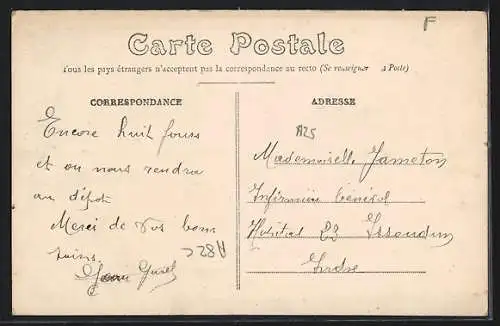 F
Carte Postale
Tous les pays étrangers n'acceptent pas la correspondance au recto (Se renseigner à Poste)
CORRESPONDANCE
ADRESSE
A25
Encore huit jours
et on nous rendra
au dépôt
Merci de vos bons
soins
Mademoiselle Jameton
Infirmière
Hôpital 23 Issoudun
Indre